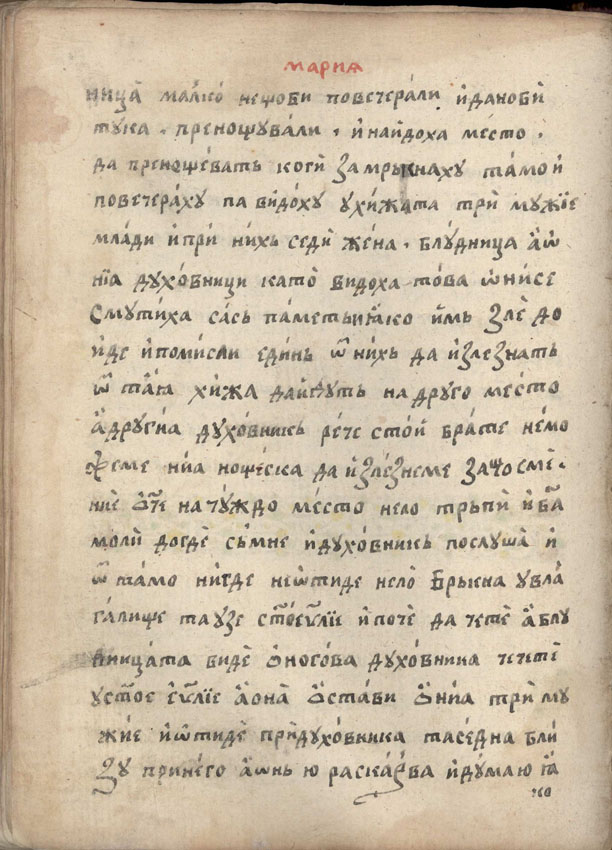 мариѧ
ницꙗ̀ ма́лко̀ нещоби повечера́ли и҆данобѝ
тꙋка · преношꙋва́ли · и҆на́йдоха ме́сто ·
да преноще́вать коги̏ замрькнахꙋ та́мо и҆
повечера́хꙋ па ви́дохꙋ ꙋхи́жата трѝ мꙋжїе
мла́ди и҆при ни́хь седѝ же́на · блꙋ́дница а҆ѡ҆
нїа дꙋхо́вници като̀ видоха това ѡ҆нисе
смꙋти́ха са́сь па́меть ꙗ҆ко и҆мь зле до
иде и҆поми́сли еди́нь ѿ ни́хь да и҆злезнать
ѿ таꙗ хи́жа да и҆дꙋть на дрꙋго ме́сто
а҆дрꙋгиа дꙋхо́вникь ре́че сто́й бра́те не́мо
жеме нїа ноще́ска да и҆зле́знеме защо смѐ ·
ние ѻ҆ти на чꙋ́ждо ме́сто нело трьпѝ и҆ба̃
молѝ догдѐ сьмне и҆дꙋхо́вникь послꙋша̀ и҆
ѿ та́мо ни́где неѿтиде нело̀ брькна ꙋвла
га́лище та ꙋзе ст҃ое еѵ҃лїе и҆почѐ да четѐ а҆блꙋ
дница́та видѐ ѻ҆ного́ва дꙋхо́вника че четѐ
ꙋст҃ое еѵ҃лїе а҆она̀ ѻ҆ста́ви ѻ҆нїа три мꙋ
жїе и҆ѿтидѐ при дꙋхо́вника та се́дна бли́
зꙋ при него а҆ѡ҆нь ю раска́рва и҆дꙋмаю